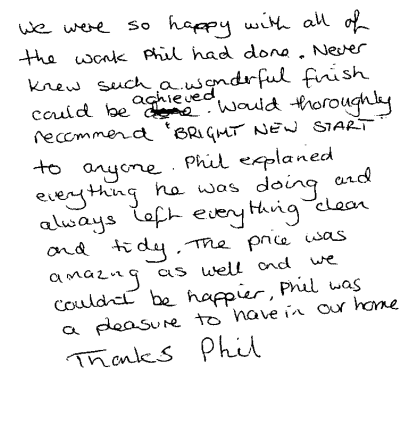 We were so happy with all of
the work Phil had done. Never
knew such a wonderful finish
could be achieved. Would thoroughly
recommend 'BRIGHT NEW START'
to anyone. Phil explained
everything he was doing and
always left everything clean
and tidy. The price was
amazing as well and we
couldn't be happier, Phil was
a pleasure to have in our home
Thanks Phil